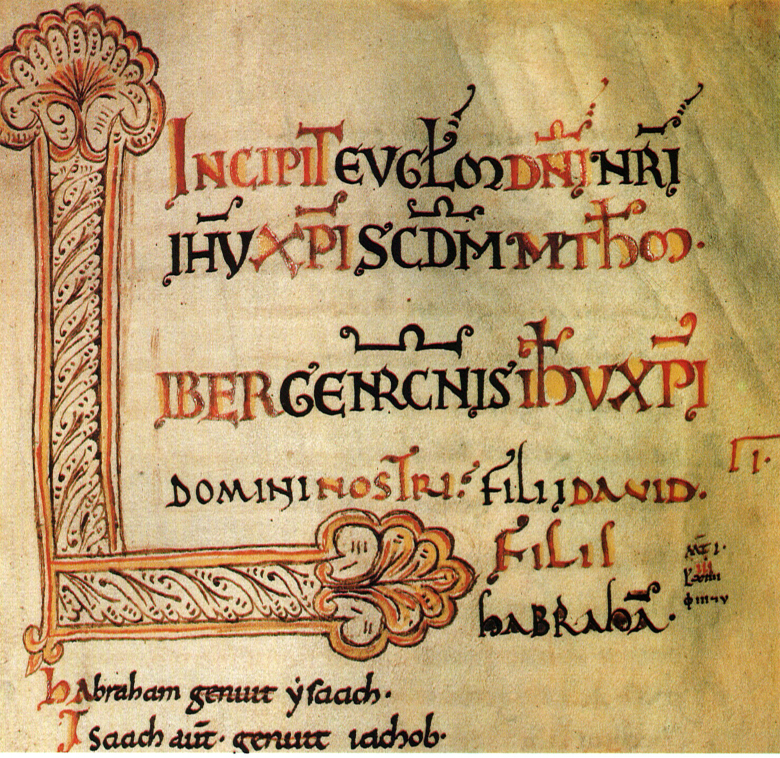 INCIPIT EVGLM DNI NRI
IHV XPI SCDM MTHM.
LIBER GENRCNIS IHV XPI
DOMINI NOSTRI: FILII DAVID.
FILII
hABRAhĀ.
I.
MT I.
habraham genuit ẏsaach.
Isaach aut̄. genuit iachob.